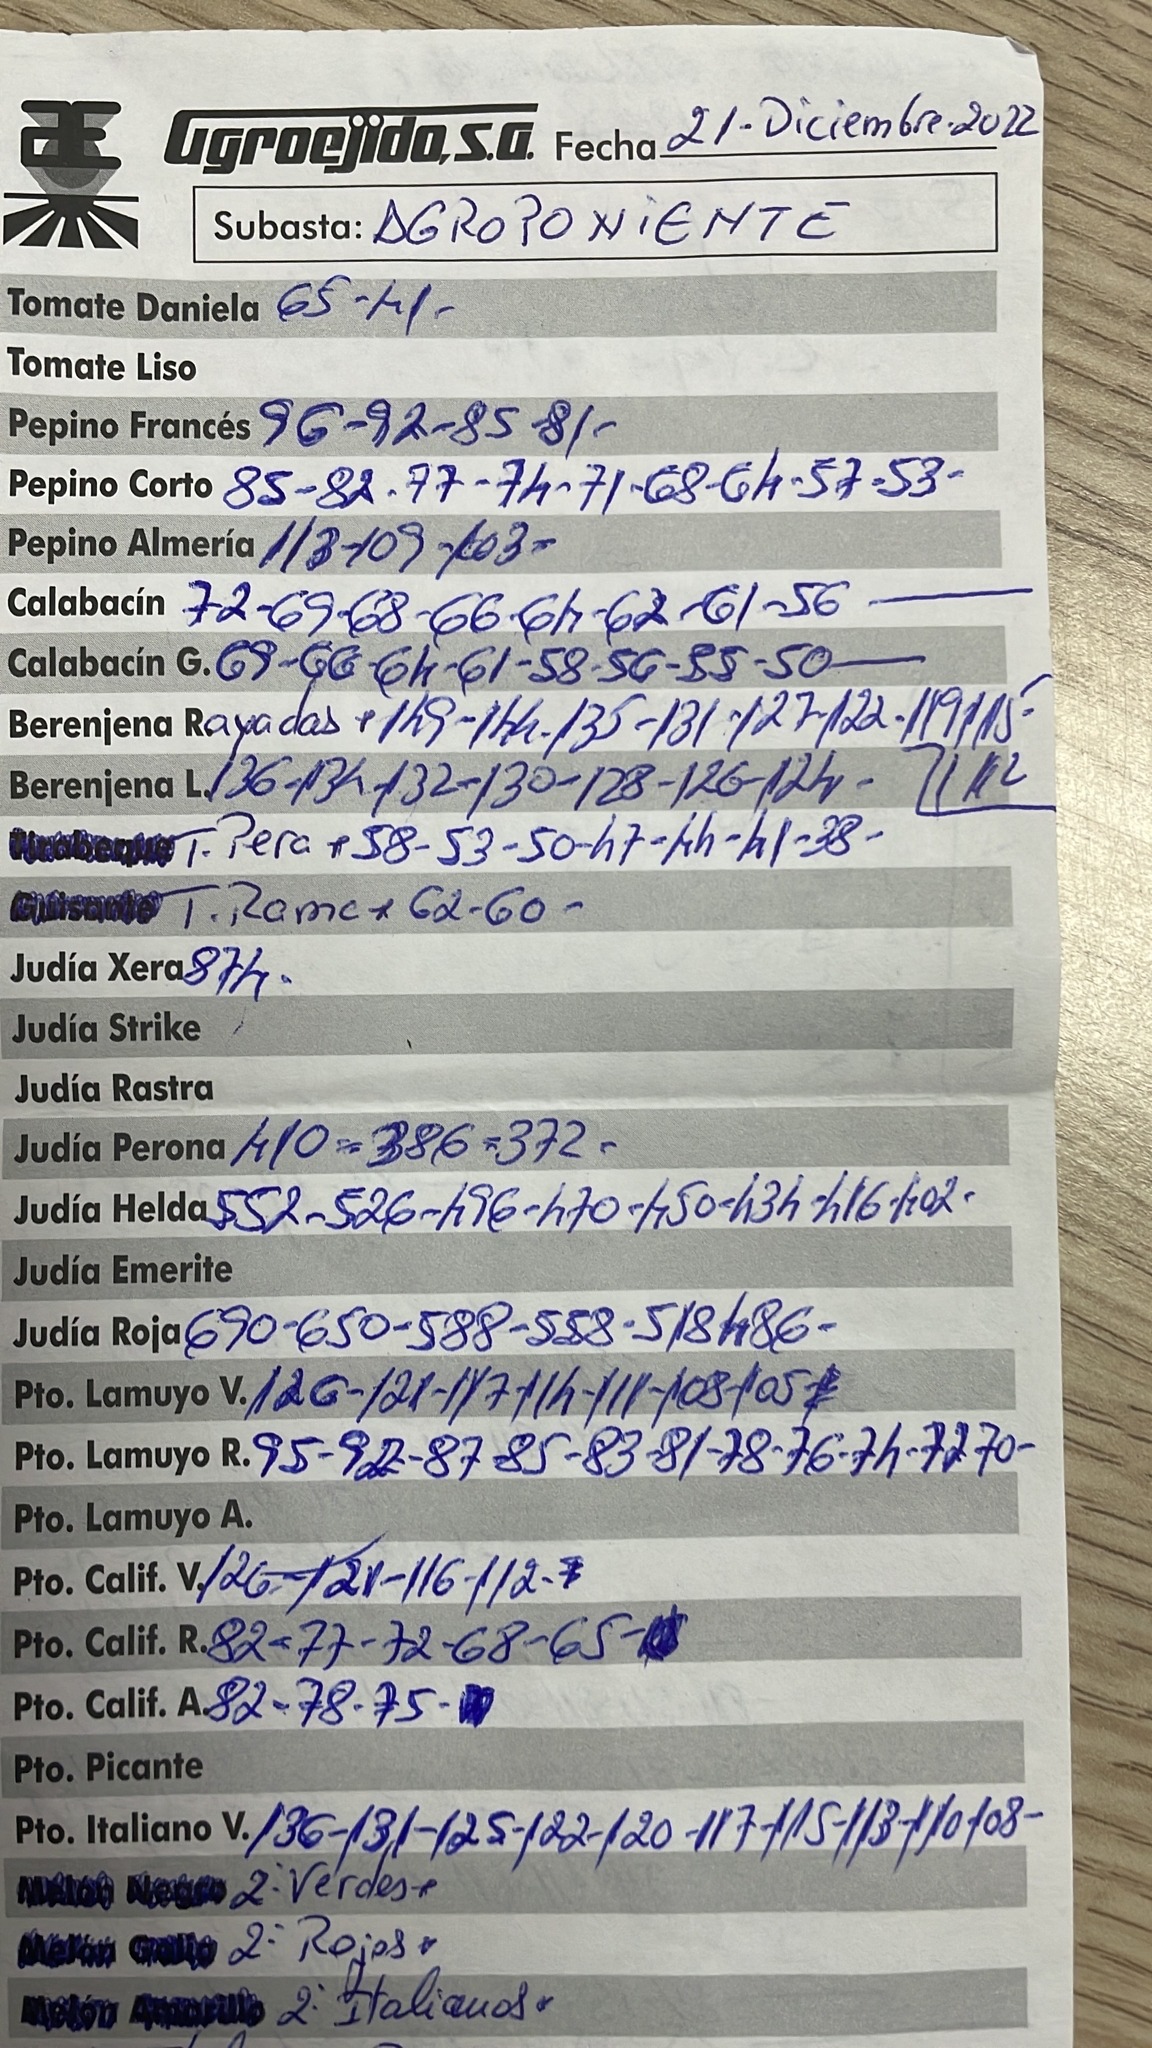 Agroejido, S.A. Fecha 21-Diciembre-2022
Subasta: AGROPONIENTE
Tomate Daniela 65-41-
Tomate Liso
Pepino Francés 96-92-85-81-
Pepino Corto 85-82-77-74-71-68-64-57-53-
Pepino Almería 113-109-103-
Calabacín 72-69-68-66-64-62-61-56
Calabacín G. 69-66-64-61-58-56-55-50
Berenjena Rayadas * 149-144-135-131-127-122-119-115-
112
Berenjena L. 136-134-132-130-128-126-124-
T. Pera * 58-53-50-47-44-41-38-
T. Rama * 62-60-
Judía Xera 874.
Judía Strike
Judía Rastra
Judía Perona 410=386=372-
Judía Helda 552-526-496-470-450-434-416-402-
Judía Emerite
Judía Roja 690-650-588-558-518-486-
Pto. Lamuyo V. 126-121-117-114-111-108-105-
Pto. Lamuyo R. 95-92-87-85-83-81-78-76-74-72-70-
Pto. Lamuyo A.
Pto. Calif. V. 126-121-116-112-
Pto. Calif. R. 82-77-72-68-65-
Pto. Calif. A. 82-78-75-
Pto. Picante
Pto. Italiano V. 136-131-125-122-120-117-115-113-110-108-
Melón Negro 2ª Verdes *
Melón Galia 2ª Rojos *
Melón Amarillo 2ª Italianos *